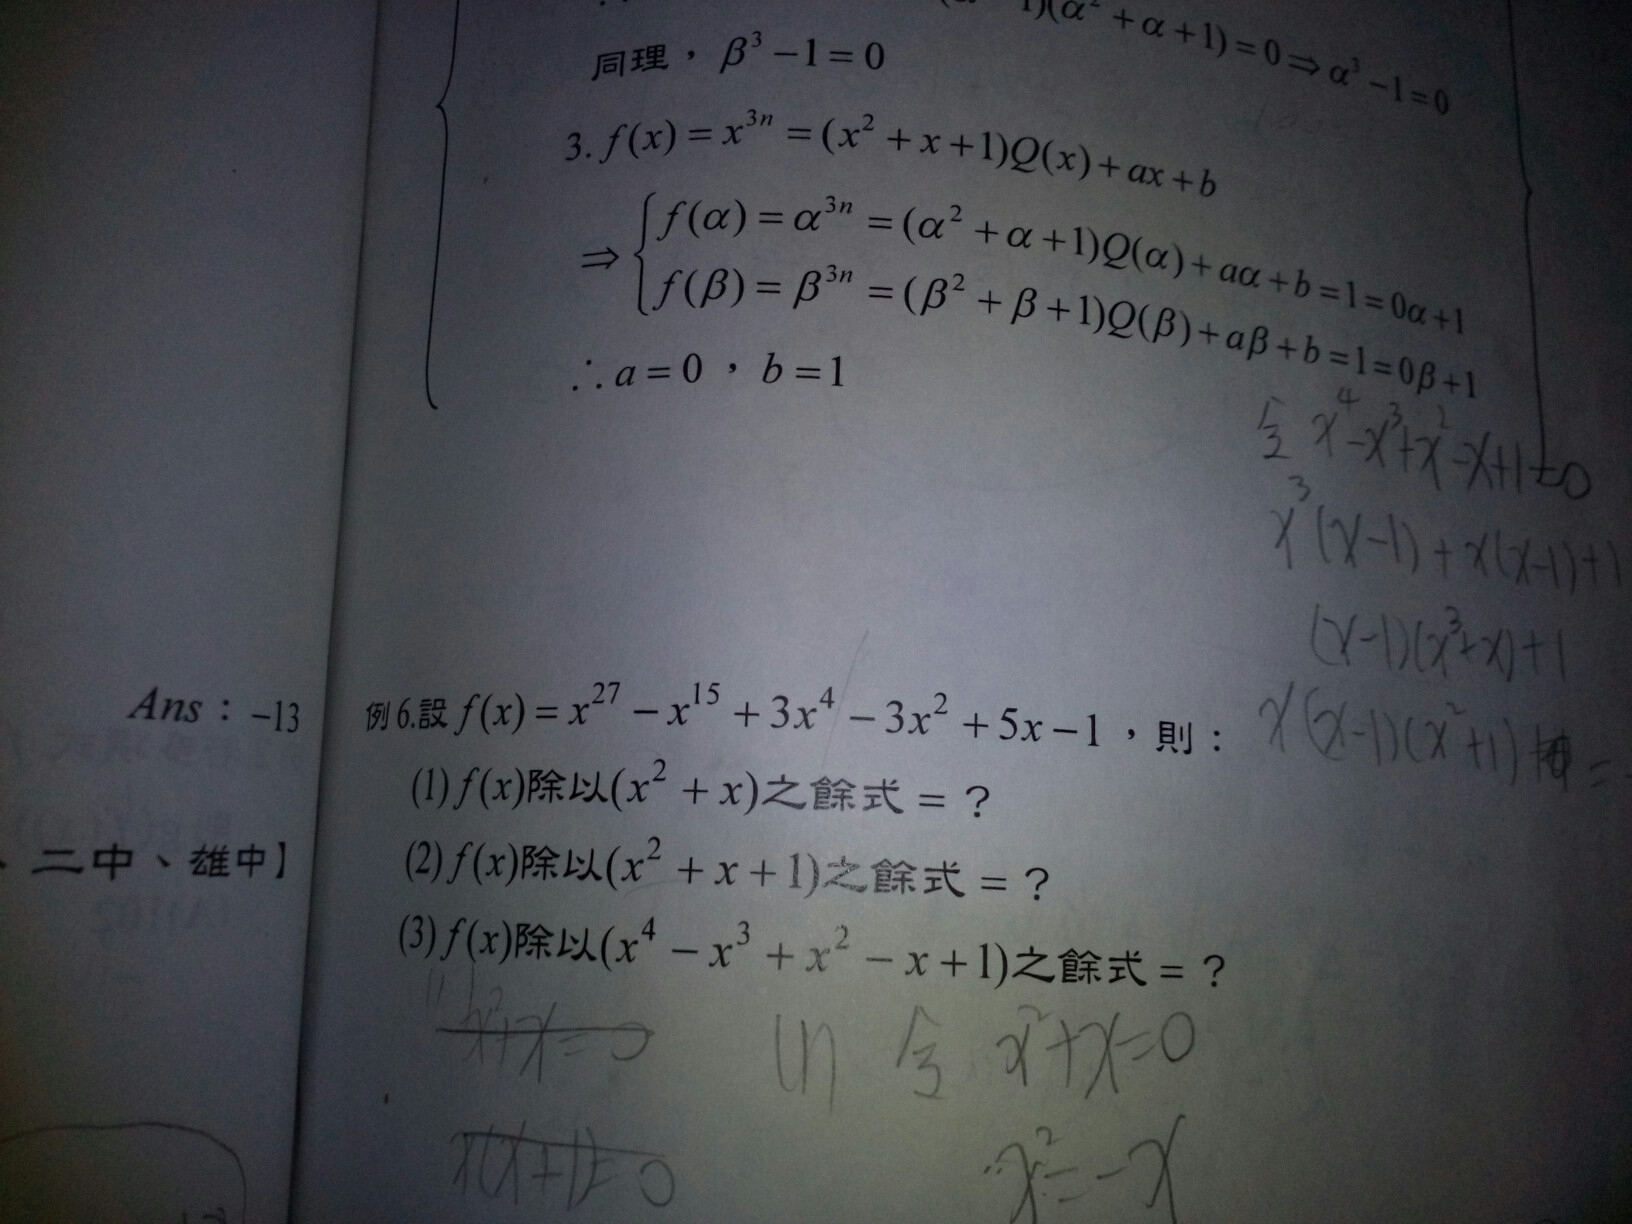 (α²+α+1)=0⇒α³−1=0
同理，β³−1=0
3. f(x)=x³ⁿ=(x²+x+1)Q(x)+ax+b
⇒{f(α)=α³ⁿ=(α²+α+1)Q(α)+aα+b=1=0α+1
f(β)=β³ⁿ=(β²+β+1)Q(β)+aβ+b=1=0β+1
∴a=0，b=1
令 x⁴-x³+x²-x+1=0
x³(x-1)+x(x-1)+1
(x-1)(x³+x)+1
x(x-1)(x²+1)
Ans：−13
例6.設f(x)=x²⁷−x¹⁵+3x⁴−3x²+5x−1，則：
(1)f(x)除以(x²+x)之餘式=？
、二中、雄中】
(2)f(x)除以(x²+x+1)之餘式=？
(3)f(x)除以(x⁴−x³+x²−x+1)之餘式=？
x²+x=0
(1) 令 x²+x=0
x(x+1)=0
∴x²=-x